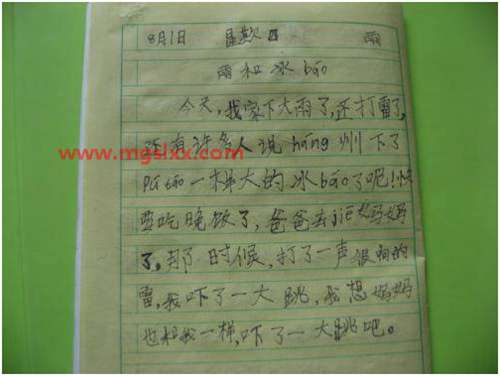 8月1日 星期 雨
雨和冰báo
今天,我家下大雨了,还打雷了,
还有许多人说háng州下了
www.mgslxx.com
pútáo一样大的冰báo了呢!快
要吃晚饭了,爸爸去jiē妈妈
了,那时候,打了一声很响的
雷,我吓了一大跳,我想妈妈
也和我一样,吓了一大跳吧。